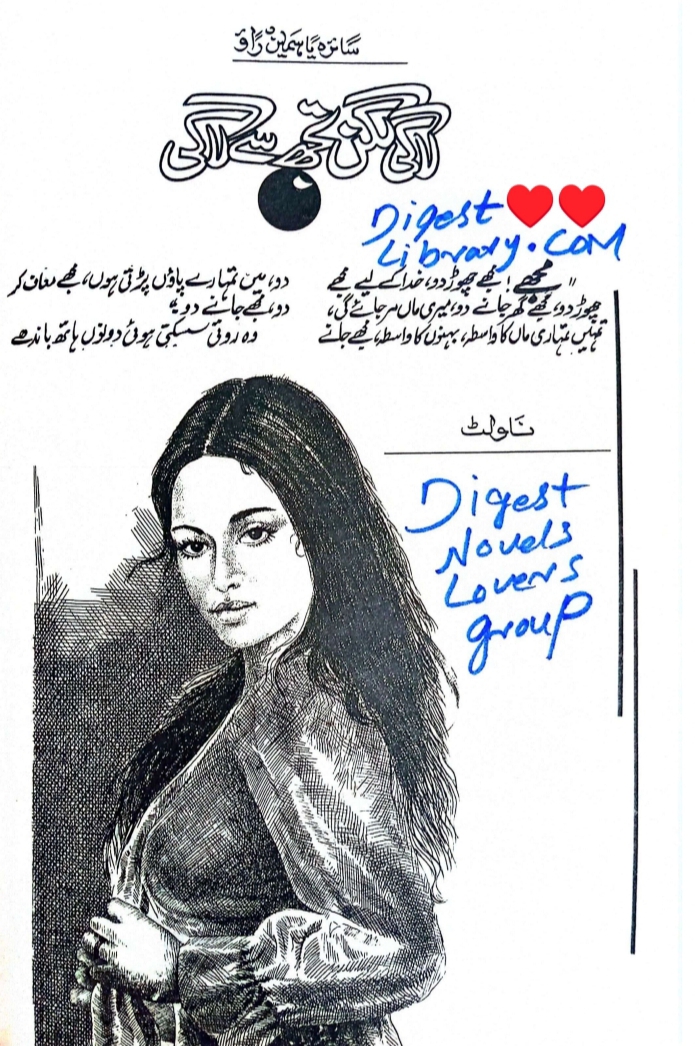 سائرہ یاہمین راؤ
لاگی لگن تجھ سے لاگی
Digest ❤️❤️
Library.COM
"مجھے! مجھے چھوڑ دو، خدا کے لیے مجھے
چھوڑ دو، مجھے گھر جانے دو، میری ماں مر جائے گی،
تمہیں تمہاری ماں کا واسطہ، بہنوں کا واسطہ، مجھے جانے
دو، میں تمہارے پاؤں پڑتی ہوں، مجھے معاف کر
دو، مجھے جانے دو۔"
وہ روتی سسکتی ہوئی دونوں ہاتھ باندھے
ناولٹ
Digest
Novels
Lovers
group